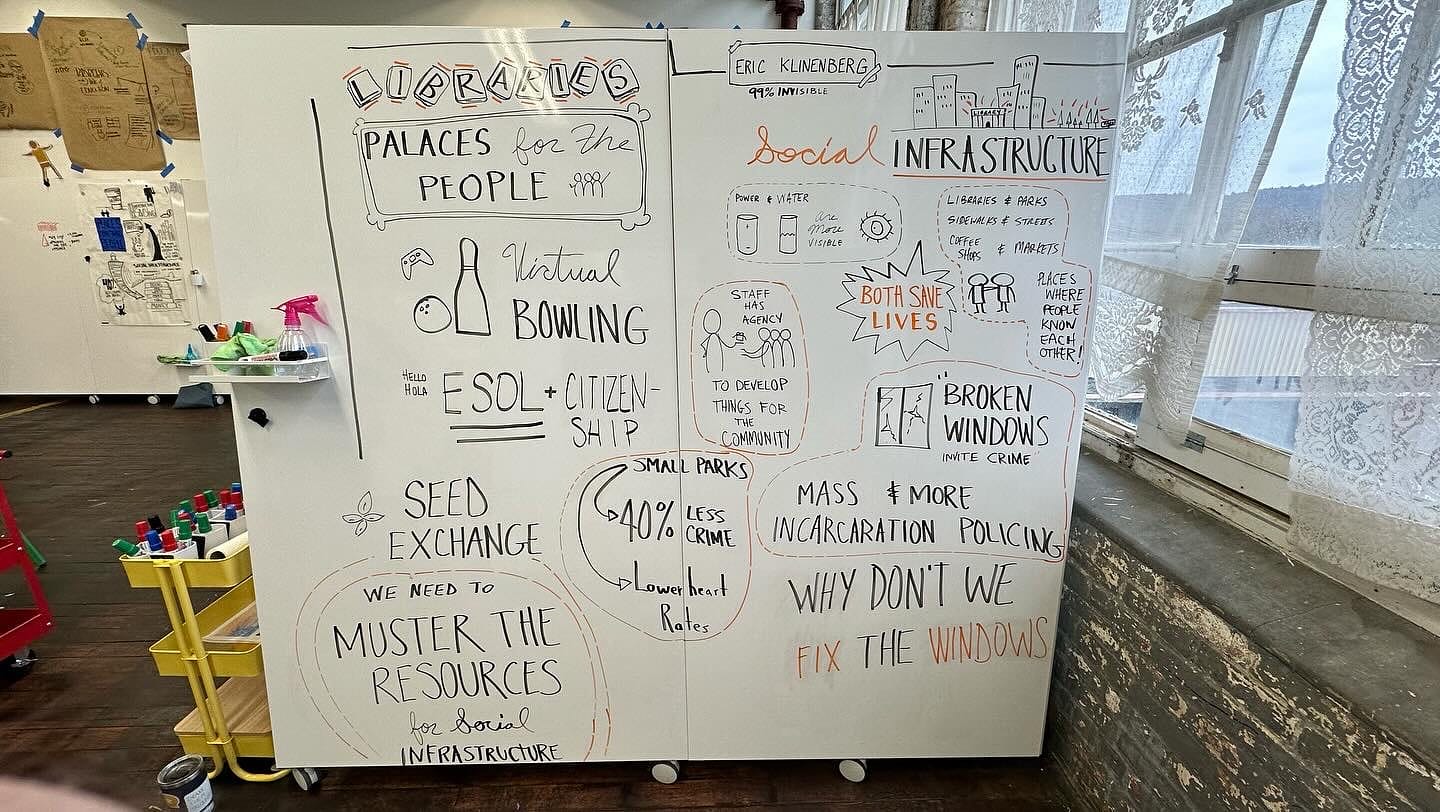 LIBRARIES
PALACES for the
PEOPLE
Virtual
BOWLING
HELLO
HOLA
ESOL + CITIZEN-
SHIP
SEED
EXCHANGE
WE NEED TO
MUSTER THE
RESOURCES
for Social
INFRASTRUCTURE
ERIC KLINENBERG
99% INVISIBLE
LIBRARY
Social INFRASTRUCTURE
POWER & WATER
are
More
VISIBLE
LIBRARIES & PARKS
SIDEWALKS & STREETS
COFFEE
SHOPS & MARKETS
PLACES
WHERE
PEOPLE
KNOW
EACH
OTHER!
BOTH SAVE
LIVES
STAFF
HAS
AGENCY
TO DEVELOP
THINGS FOR
THE
COMMUNITY
"BROKEN
WINDOWS
INVITE CRIME"
MASS & MORE
INCARCARATION POLICING
SMALL PARKS
40% LESS
CRIME
Lower heart
Rates
WHY DON'T WE
FIX THE WINDOWS